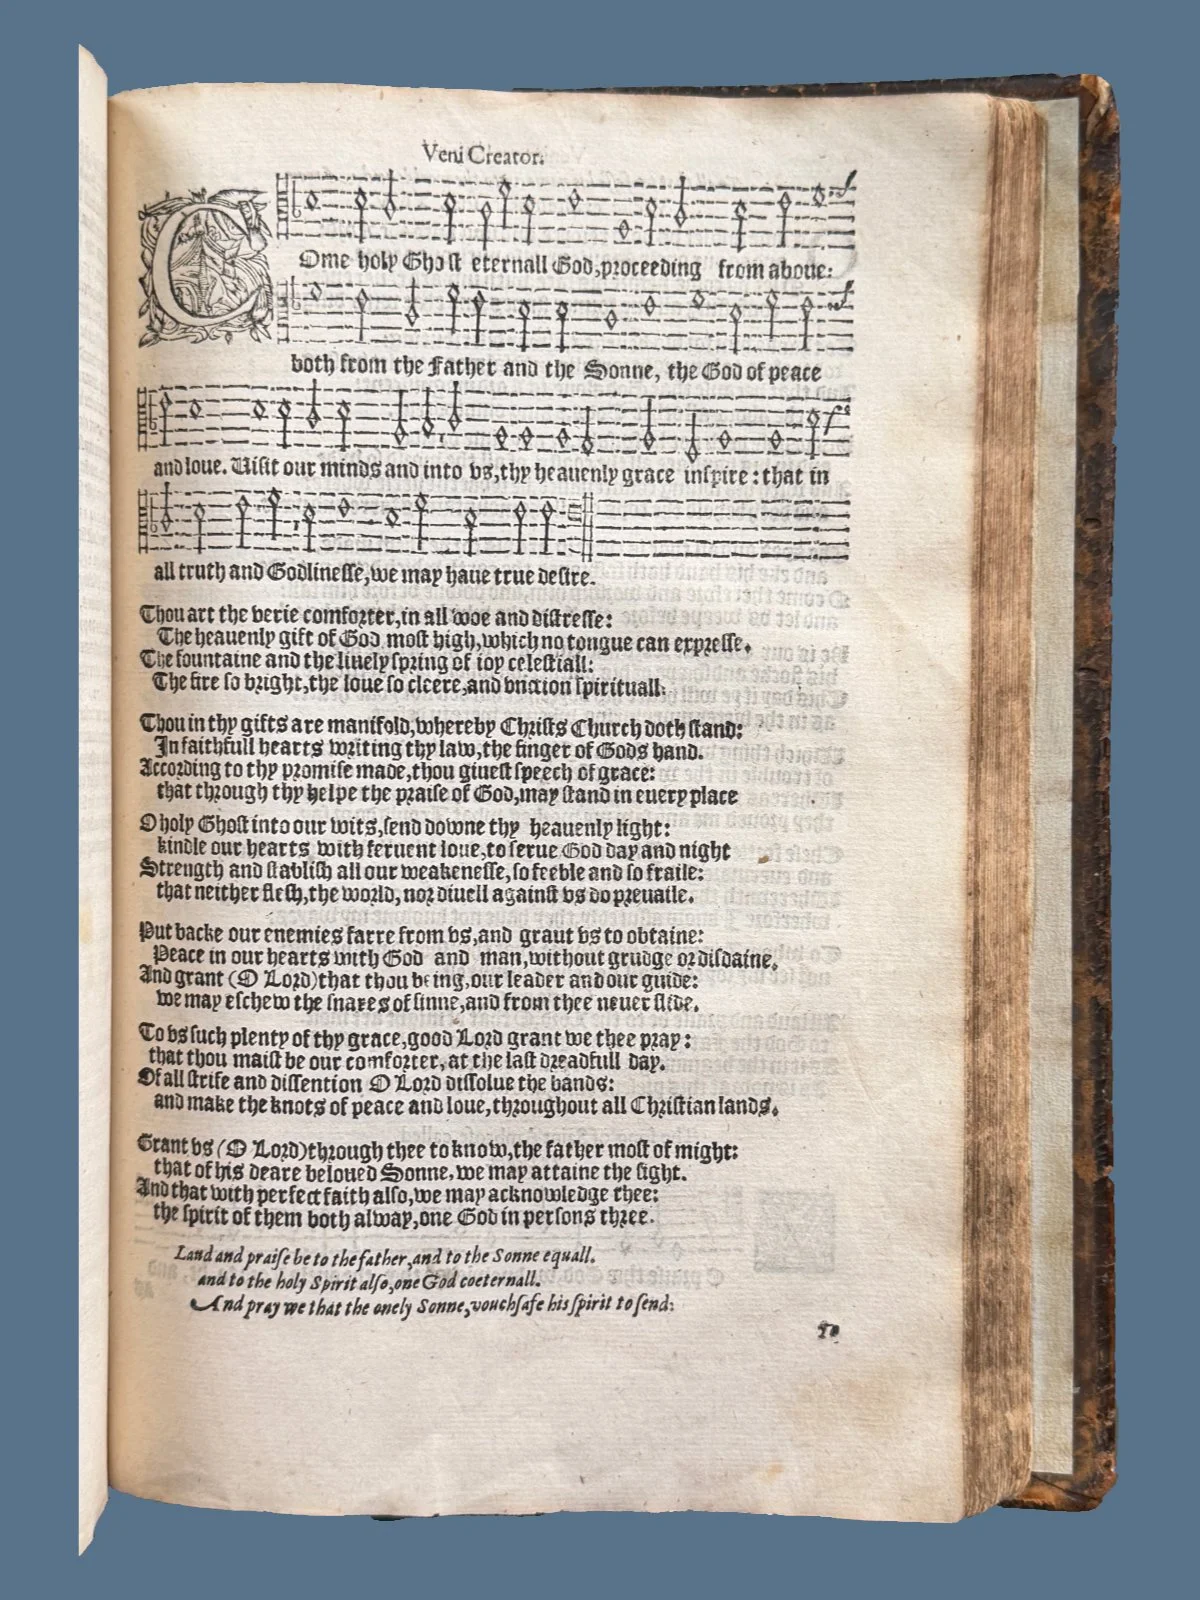 Veni Creator.
COme holy Ghost eternall God, proceeding from aboue:
both from the Father and the Sonne, the God of peace
and loue. Uisit our minds and into vs, thy heauenly grace inspire: that in
all truth and Godlinesse, we may haue true desire.
Thou art the verie comforter, in all woe and distresse:
The heauenly gift of God most high, which no tongue can expresse.
The fountaine and the liuely spring of ioy celestiall:
The fire so bright, the loue so cleere, and vnction spirituall.
Thou in thy gifts are manifold, whereby Christs Church doth stand:
In faithfull hearts writing thy law, the finger of Gods hand.
According to thy promise made, thou giuest speech of grace:
that through thy helpe the praise of God, may stand in euery place
O holy Ghost into our wits, send downe thy heauenly light:
kindle our hearts with feruent loue, to serue God day and night
Strength and stablish all our weakenesse, so feeble and so fraile:
that neither flesh, the world, nor diuell against vs do preuaile.
Put backe our enemies farre from vs, and graut vs to obtaine:
Peace in our hearts with God and man, without grudge or disdaine.
And grant (O Lord) that thou being, our leader and our guide:
we may eschew the snares of sinne, and from thee neuer slide.
To vs such plenty of thy grace, good Lord grant we thee pray:
that thou maist be our comforter, at the last dreadfull day.
Of all strife and dissention O Lord dissolue the bands:
and make the knots of peace and loue, throughout all Christian lands.
Grant vs (O Lord) through thee to know, the father most of might:
that of his deare beloued Sonne, we may attaine the sight.
And that with perfect faith also, we may acknowledge thee:
the spirit of them both alway, one God in persons three.
Laud and praise be to the father, and to the Sonne equall.
and to the holy Spirit also, one God coeternall.
And pray we that the onely Sonne, vouchsafe his spirit to send: